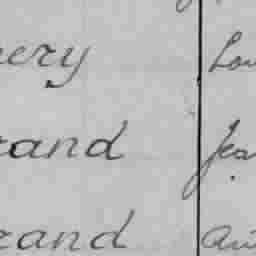 ery Lou
rand Jea
rand Au